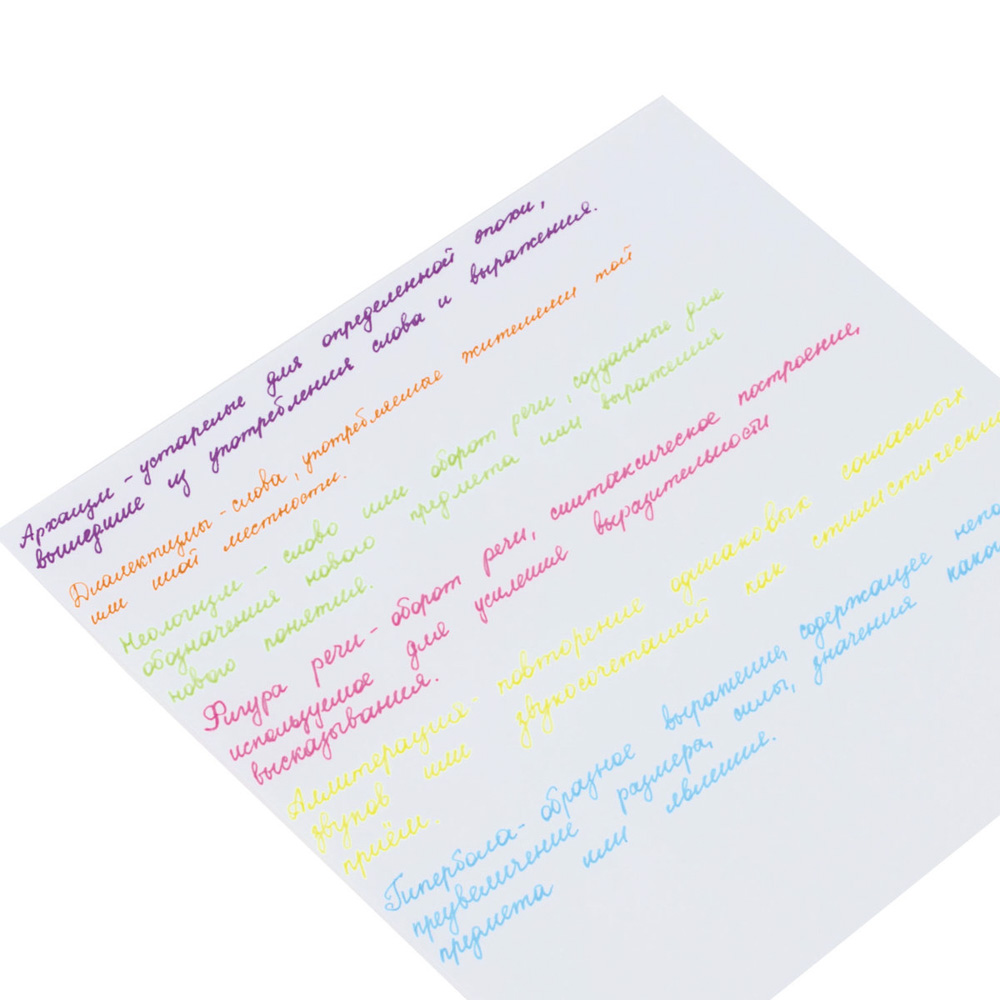 Архаизм - устарелые для определенной эпохи,
вышедшие из употребления слова и выражения.
Диалектизмы - слова, употребляемые жителями той
или иной местности.
Неологизм - слово или оборот речи, созданные для
обозначения нового предмета или выражения
нового понятия.
Фигура речи - оборот речи, синтаксическое построение,
используемое для усиления выразительности
высказывания.
Аллитерация - повторение одинаковых согласных
звуков или звукосочетаний как стилистический
приём.
Гипербола - образное выражение, содержащее непо
преувеличение размера, силы, значения како
предмета или явления.